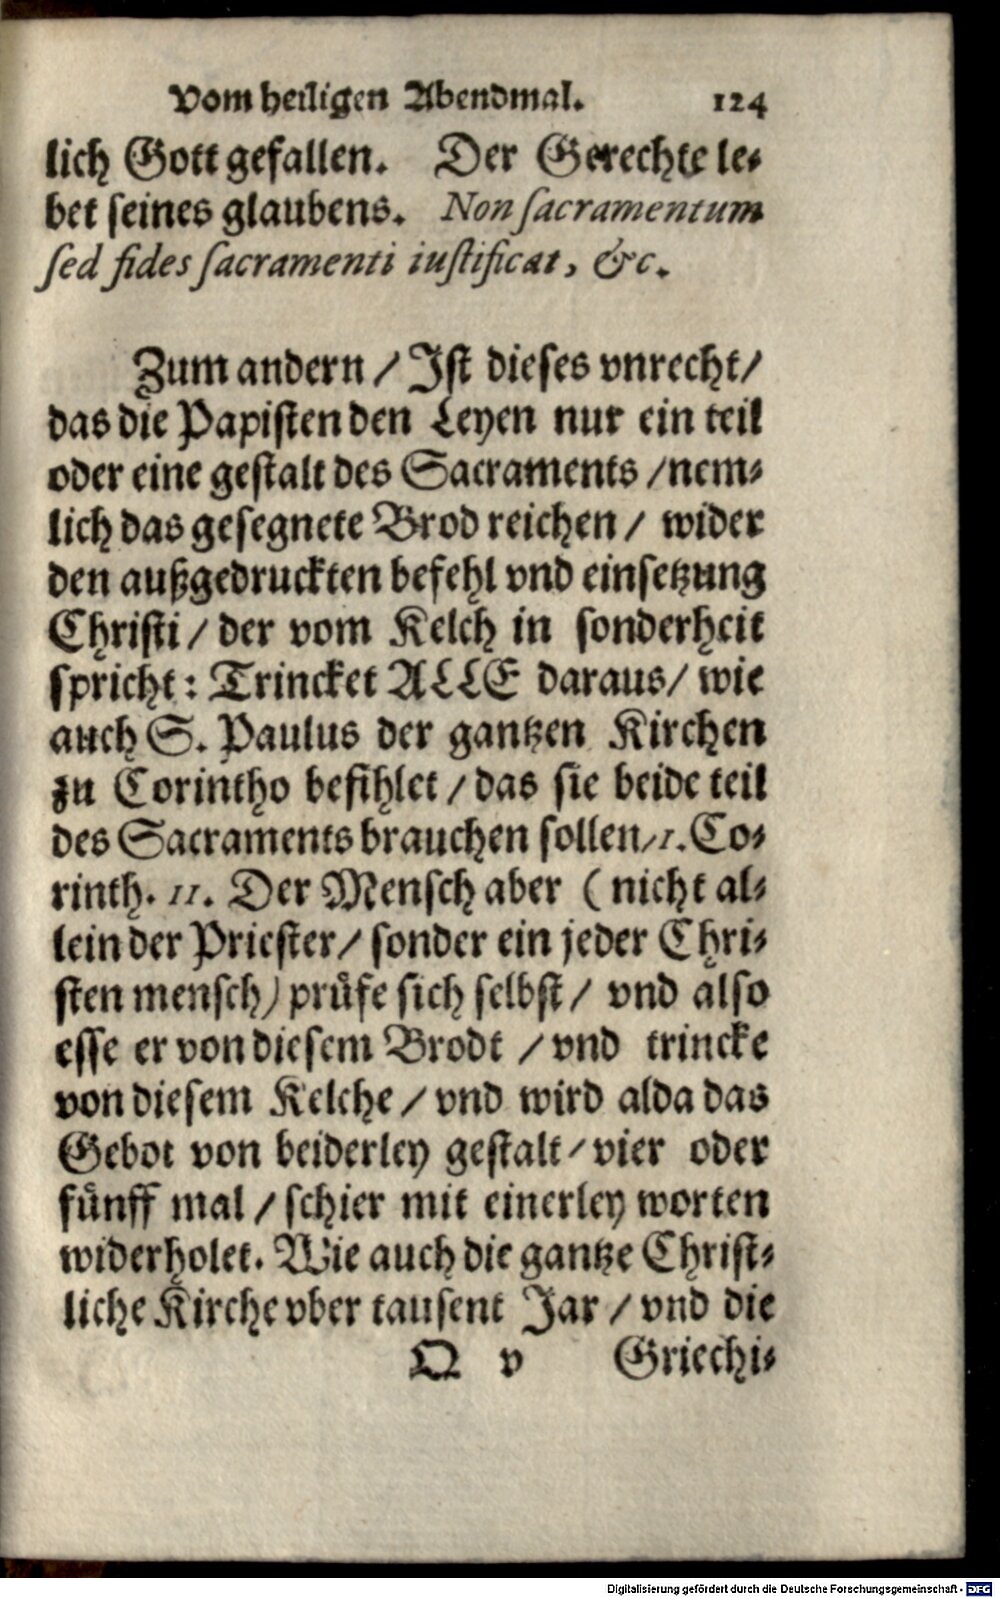 Vom heiligen Abendmal. 124
lich Gott gefallen. Der Gerechte le⸗
bet seines glaubens. Non sacramentum
sed fides sacramenti iustificat, &c.
Zum andern / Ist dieses vnrecht/
das die Papisten den Leyen nur ein teil
oder eine gestalt des Sacraments /nem⸗
lich das gesegnete Brod reichen / wider
den außgedruckten befehl vnd einsetzung
Christi / der vom Kelch in sonderheit
spricht: Trincket ALLE daraus/ wie
auch S. Paulus der gantzen Kirchen
zu Corintho befihlet / das sie beide teil
des Sacraments brauchen sollen/1. Co⸗
rinth. 11. Der Mensch aber (nicht al⸗
lein der Priester/ sonder ein jeder Chri⸗
sten mensch) prüfe sich selbst / vnd also
esse er von diesem Brodt / vnd trincke
von diesem Kelche / vnd wird alda das
Gebot von beiderley gestalt / vier oder
fünff mal / schier mit einerley worten
widerholet. Wie auch die gantze Christ⸗
liche Kirche vber tausent Jar / vnd die
Q v Griechi⸗
Digitalisierung gefördert durch die Deutsche Forschungsgemeinschaft - DFG